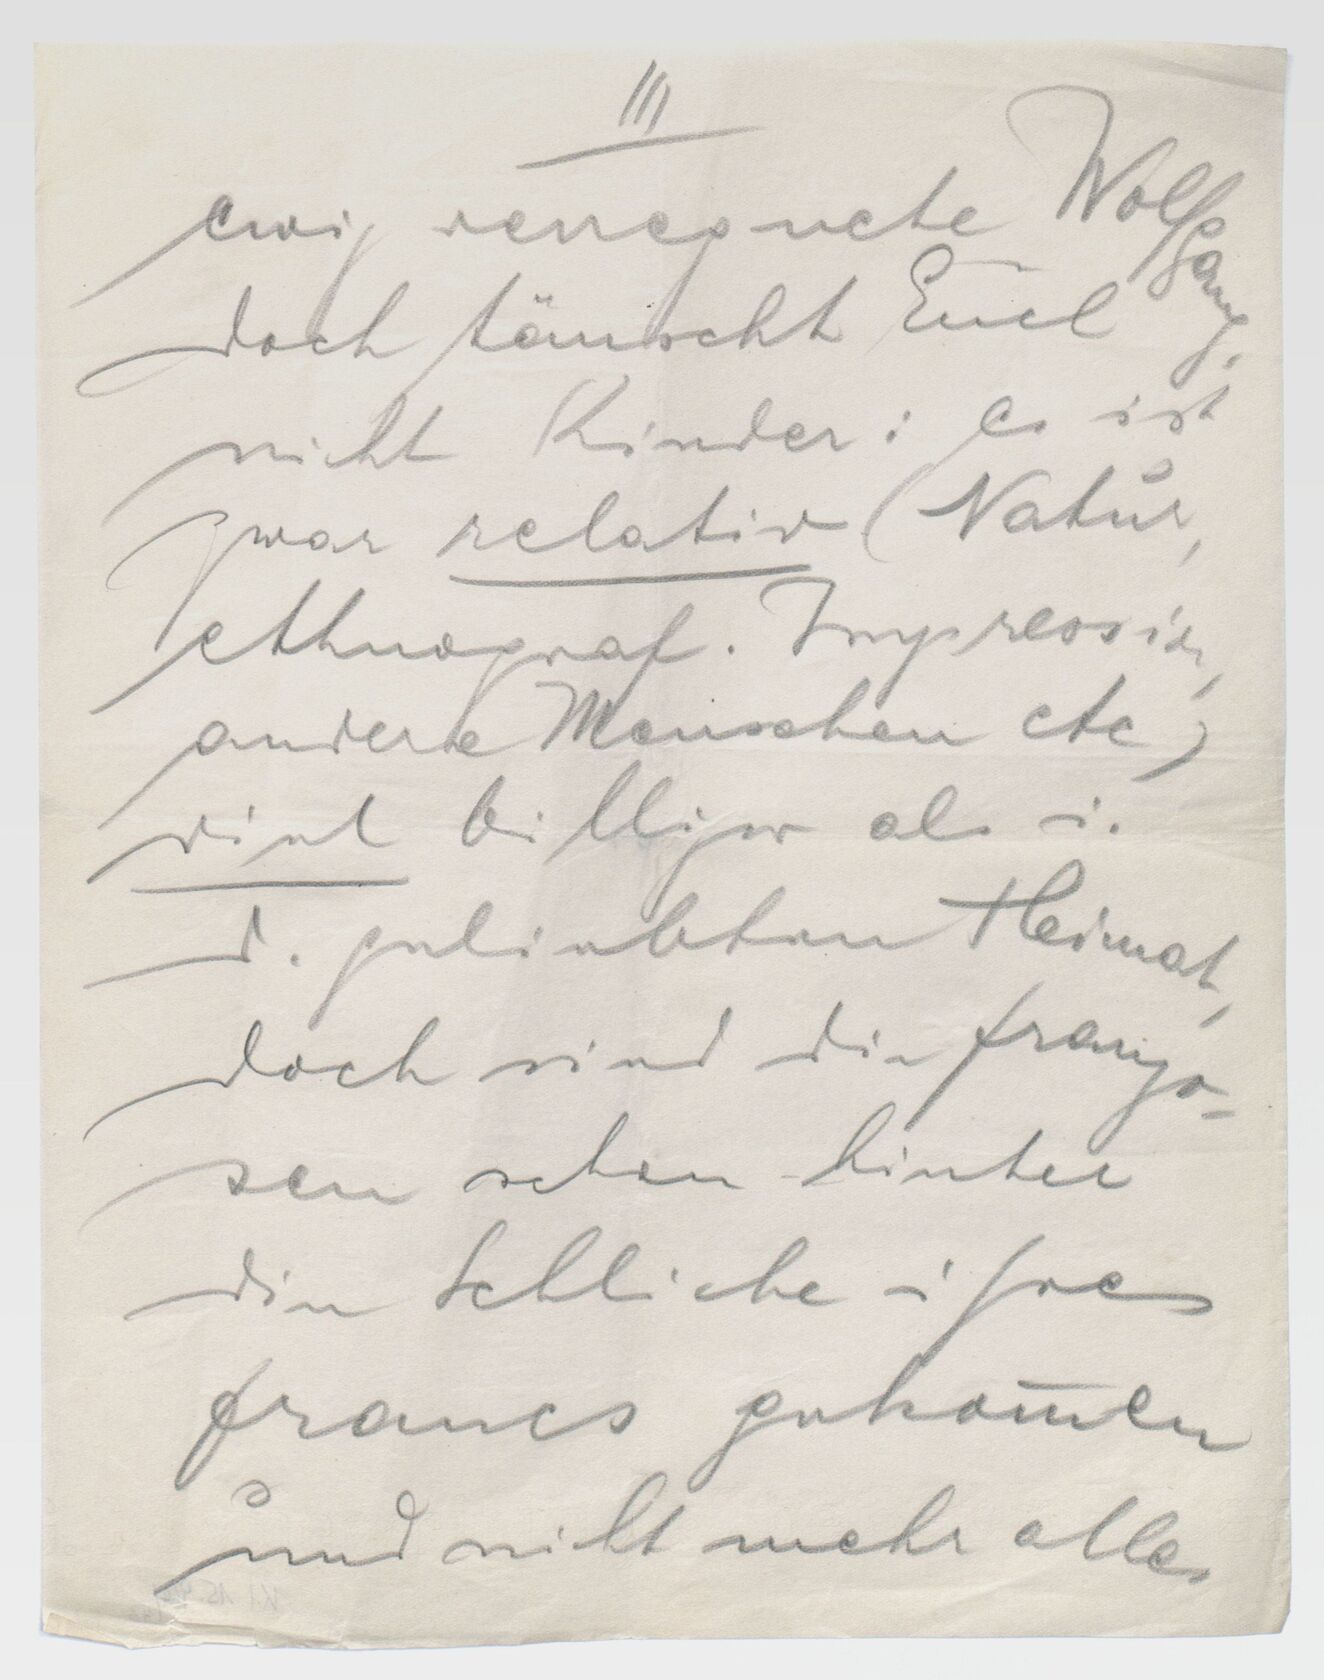 III
ewig verregnete Wolfgang,
doch täuscht Euch
nicht Kinder: es ist
zwar relativ (Natur,
ethnograf. Impression,
andere Menschen etc)
viel billiger als i.
d. geliebten Heimat,
doch sind die franzo-
sen schon hinter
die Schliche ihres
francs gekom̅en
und nicht mehr alles